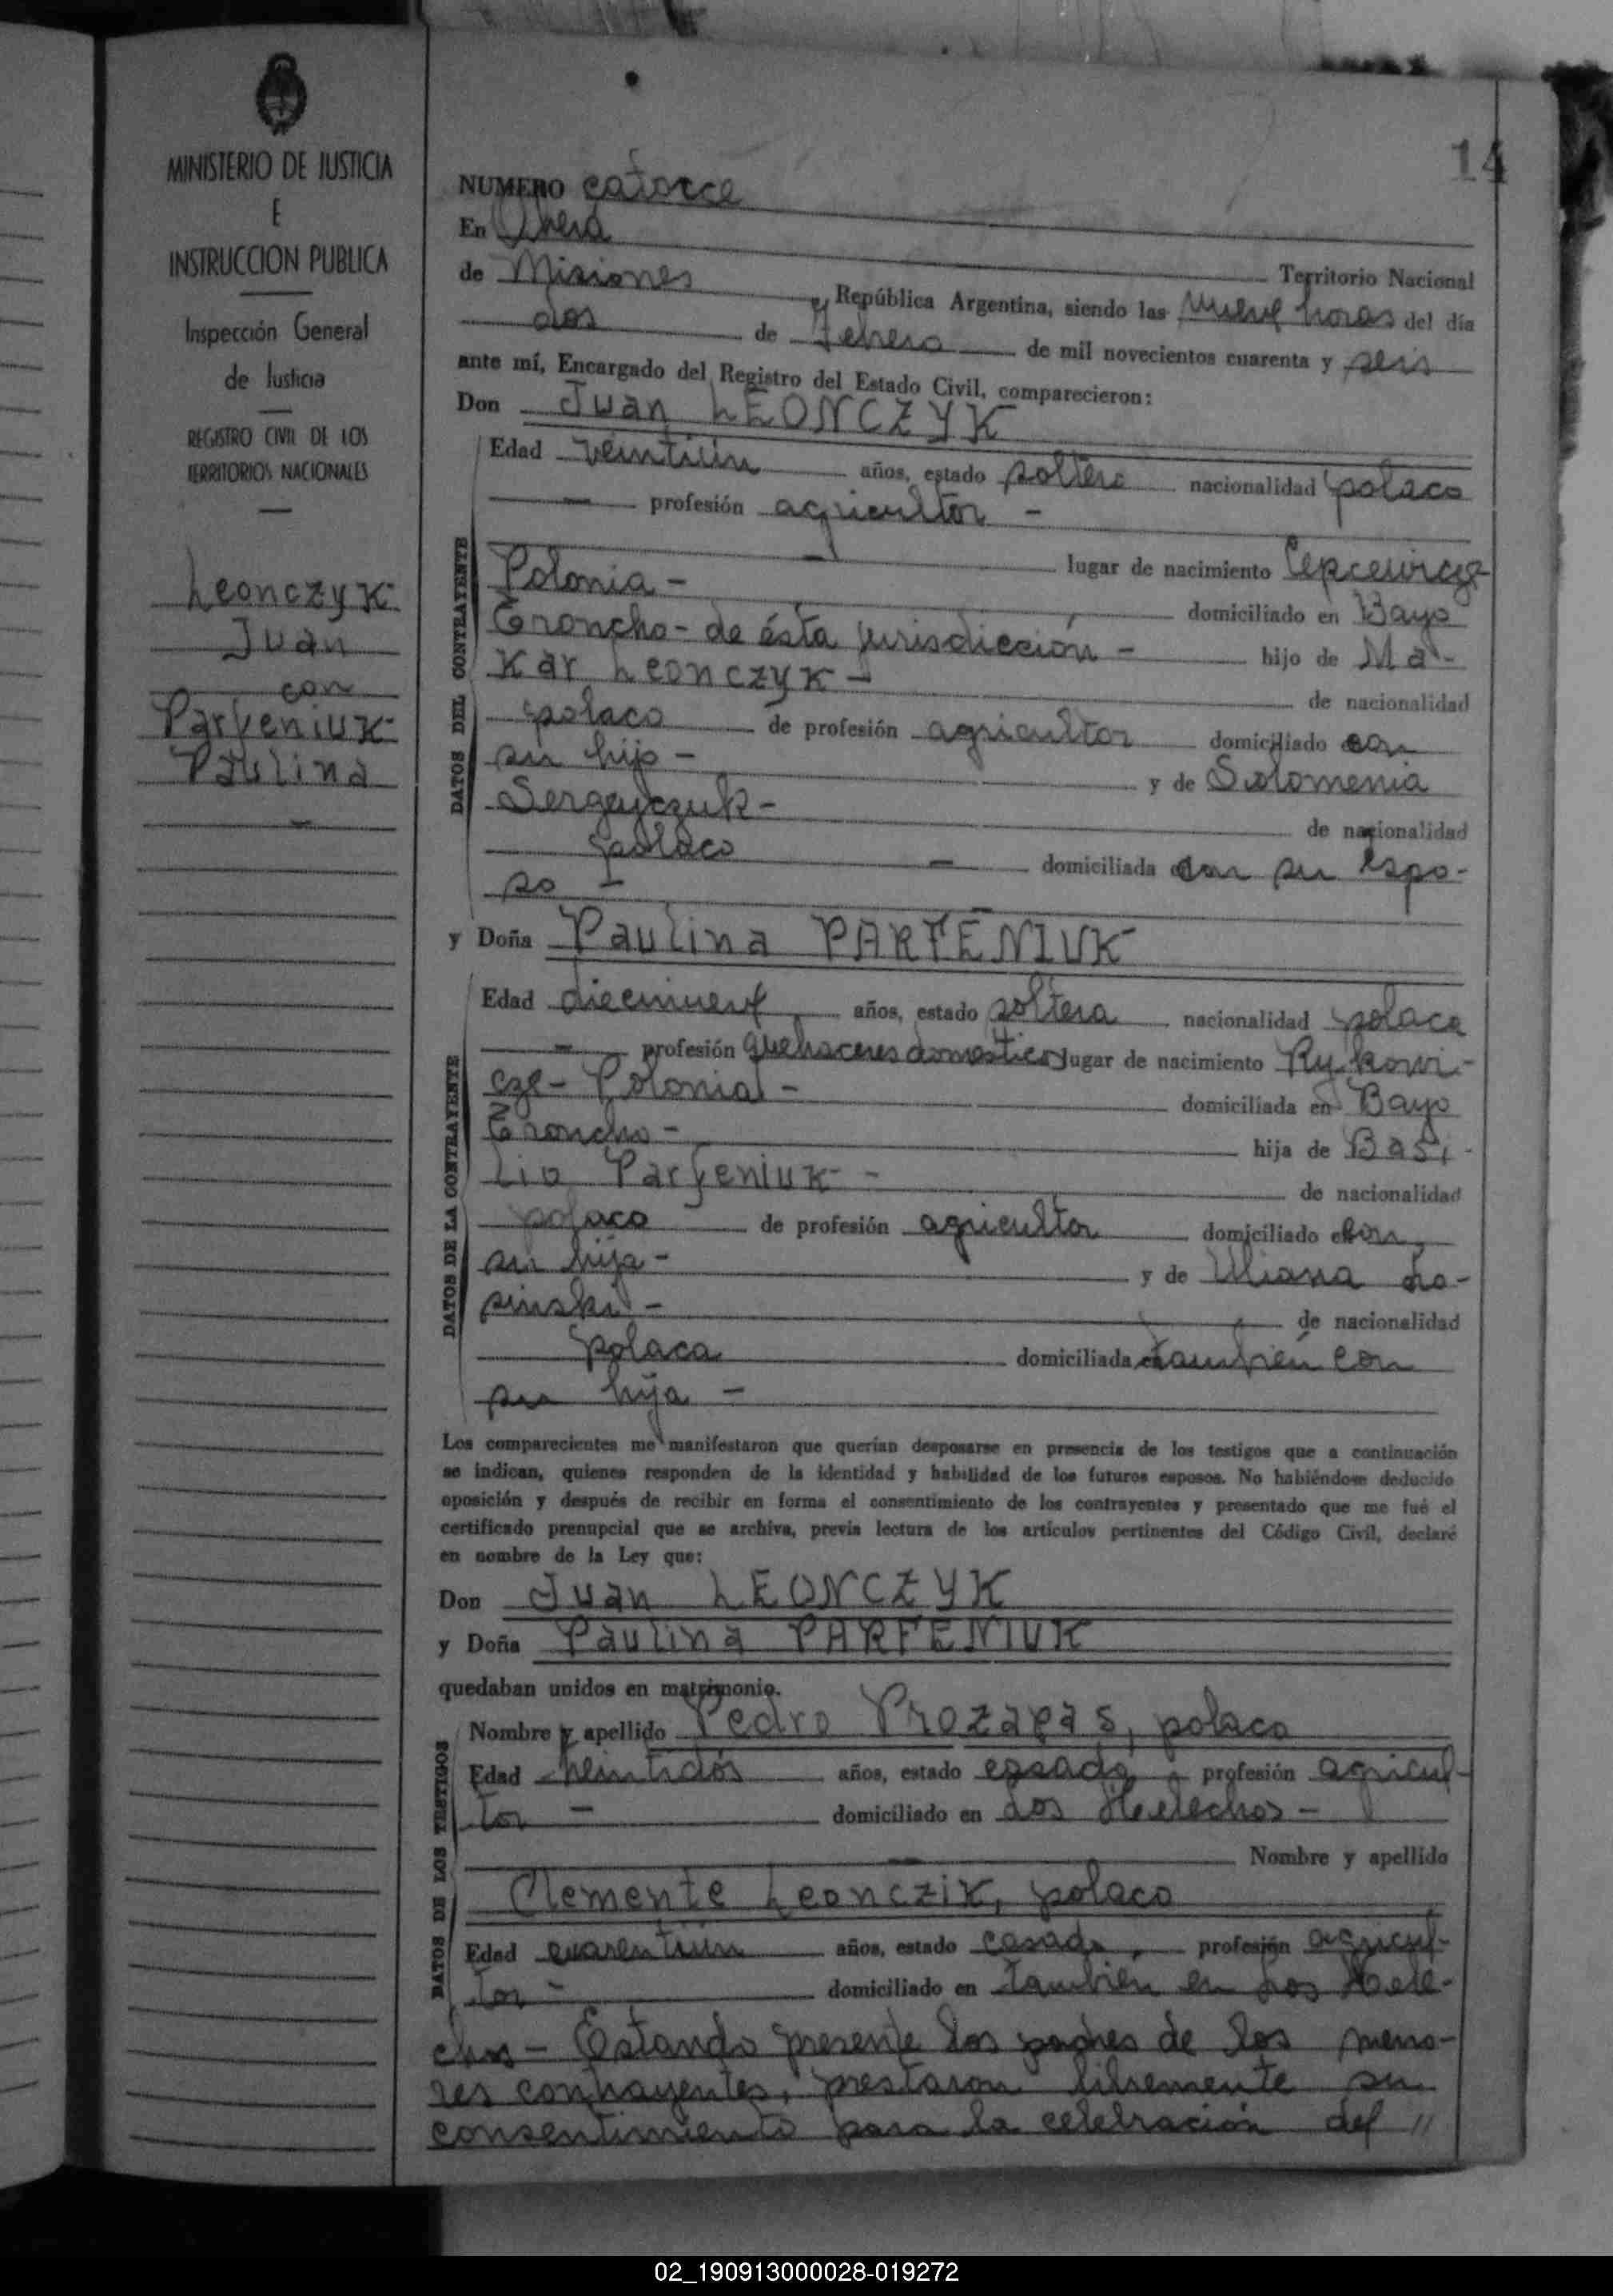 MINISTERIO DE JUSTICIA
E
INSTRUCCION PUBLICA
Inspección General
de Justicia
REGISTRO CIVIL DE LOS
TERRITORIOS NACIONALES
Leonczyk
Juan
con
Parfeniuk
Paulina
14
NUMERO catorce
En Oberá
Territorio Nacional
de Misiones, República Argentina, siendo las nueve horas del día
dos de Febrero de mil novecientos cuarenta y seis
ante mí, Encargado del Registro del Estado Civil, comparecieron:
Don Juan LEONCZYK
DATOS DEL CONTRAYENTE
Edad veintiún años, estado soltero nacionalidad polaco
— profesión agricultor -
lugar de nacimiento Cepcewicze
Polonia - domiciliado en Bayo
Troncho - de ésta jurisdicción - hijo de Ma-
kar Leonczyk - de nacionalidad
polaco de profesión agricultor domiciliado con
su hijo - y de Solomenia
Sergejczuk - de nacionalidad
polaco — domiciliada con su espo-
so -
y Doña Paulina PARFENIUK
DATOS DE LA CONTRAYENTE
Edad diecinueve años, estado soltera nacionalidad polaca
— profesión quehaceres domésticos lugar de nacimiento Rykowi-
cze - Polonia - domiciliada en Bayo
Troncho - hija de Basi-
lio Parfeniuk - de nacionalidad
polaco de profesión agricultor domiciliado con
su hija - y de Uliana Lo-
sinski - de nacionalidad
polaca domiciliada también con
su hija -
Los comparecientes me manifestaron que querían desposarse en presencia de los testigos que a continuación
se indican, quienes responden de la identidad y habilidad de los futuros esposos. No habiéndose deducido
oposición y después de recibir en forma el consentimiento de los contrayentes y presentado que me fué el
certificado prenupcial que se archiva, previa lectura de los artículos pertinentes del Código Civil, declaré
en nombre de la Ley que:
Don Juan LEONCZYK
y Doña Paulina PARFENIUK
quedaban unidos en matrimonio.
DATOS DE LOS TESTIGOS
Nombre y apellido Pedro Prozapas, polaco
Edad veintidós años, estado casado, profesión agricul-
tor - domiciliado en Los Helechos -
Nombre y apellido
Clemente Leonczik, polaco
Edad cuarentiún años, estado casado, profesión agricul-
tor - domiciliado en también en Los Hele-
chos - Estando presente los padres de los meno-
res contrayentes, prestaron libremente su
consentimiento para la celebración del //
02_190913000028-019272